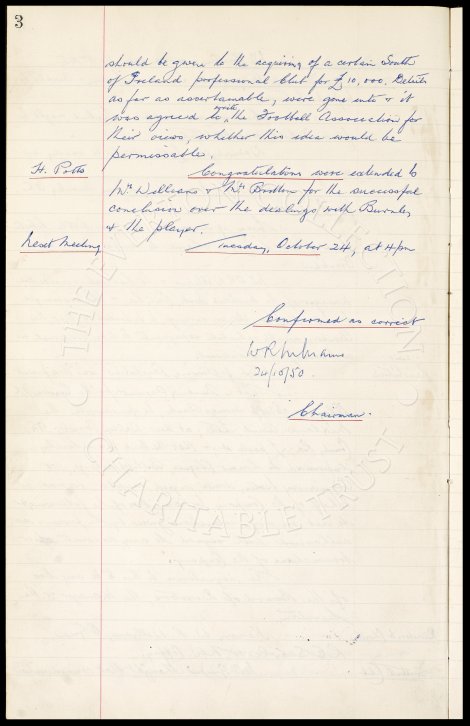 3
should be given to the acquiring of a certain South
of Ireland professional Club for £10,000. Details
as far as ascertainable, were gone into & it
was agreed to write the Football Association for
their views, whether this idea would be
permissable.
H. Potts
Congratulations were extended to
Mr. Williams & Mr. Britton for the successful
conclusion over the dealings with Burnley
& the player.
Next Meeting
Tuesday, October 24, at 4pm
Confirmed as correct
W R Williams
24/10/50
Chairman.
THE EV COLLECTION
CHARITABLE TRUST